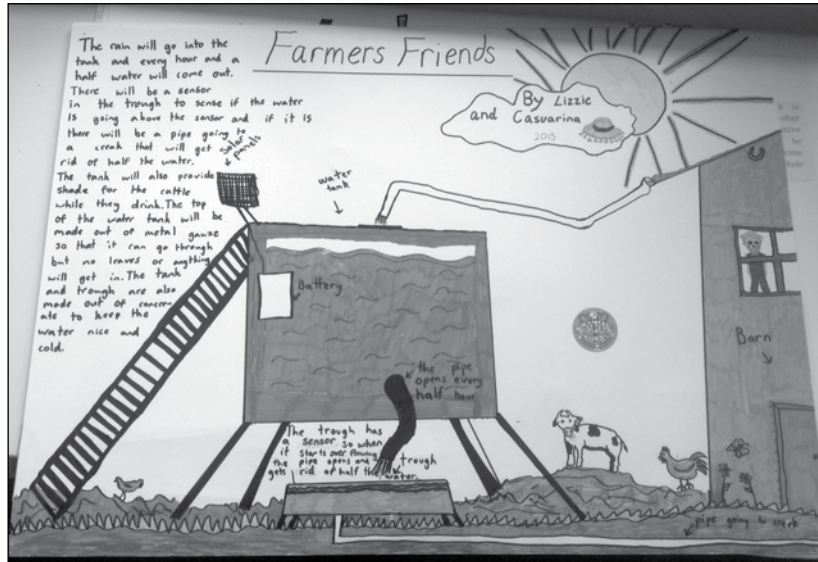 Farmers Friends
By Lizzie
and Casuarina
2015
The rain will go into the
tank and every hour and a
half water will come out.
There will be a sensor
in the trough to sense if the water
is going above the sensor and if it is
there will be a pipe going to
a creak that will get
rid of half the water.
The tank will also provide
shade for the cattle
while they drink. The top
of the water tank will be
made out of metal gauze
so that it can go through
but no leaves or anything
will get in. The tank
and trough are also
made out of concre-
ate to keep the
water nice and
cold.
Solar
panels
water
tank
Battery
the pipe
opens every
half hour
Barn
The trough has
a sensor so when
it starts over flowing
the pipe opens and
gets rid of half the
water.
trough
pipe going to creak